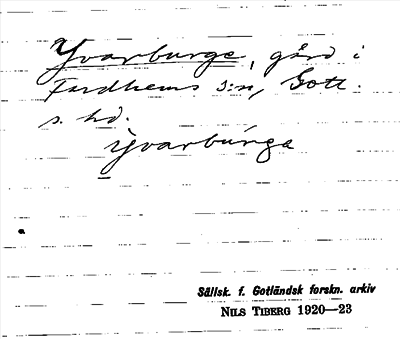 Yvarburge, gård i
Fardhems s:n, Gotl.
s. hd.
ẏvarbúrga
Sällsk. f. Gotländsk forskn. arkiv
NILS TIBERG 1920—23